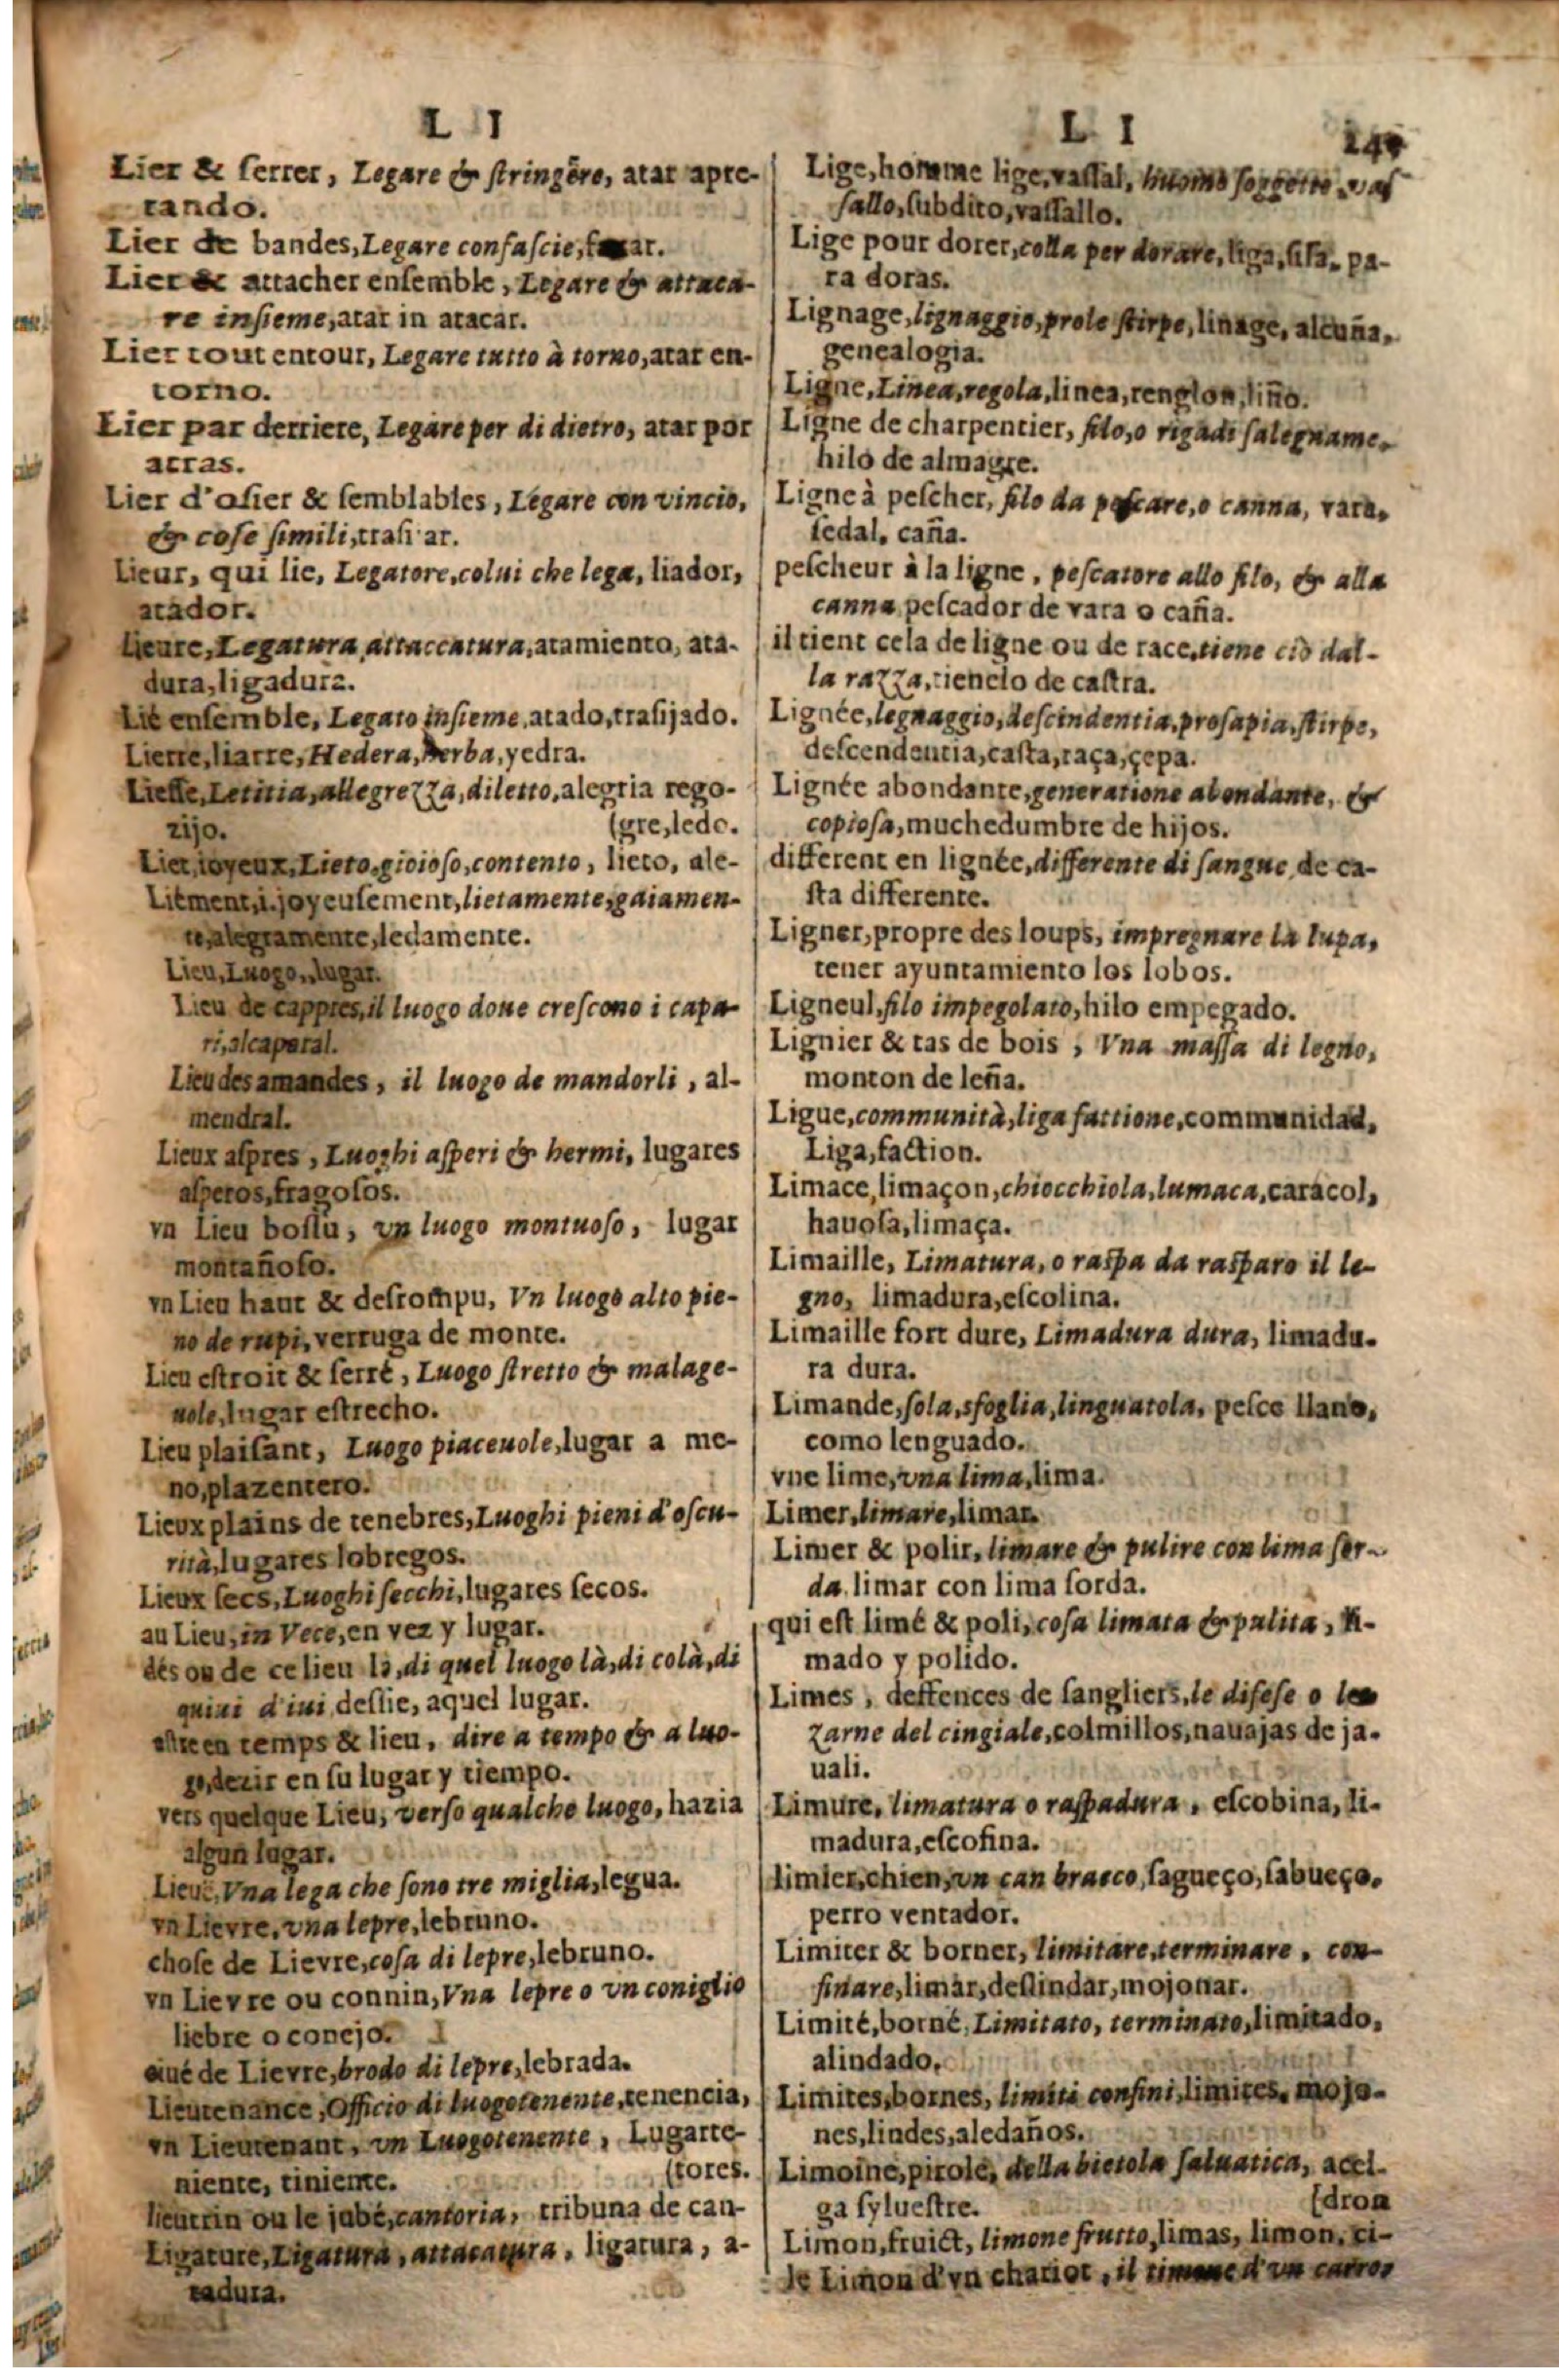 L I
Lier & ſerrer, Legare & ſtringẽre, atar apre-
tando.
Lier de bandes, Legare confaſcie,
Lier & attacher enſemble, Legare & attaca-
re inſieme, atar in atacar.
Lier tout entour, Legare tutto à torno, atar en-
torno.
Lier par derriere, Legare per di dietro, atar por
atras.
Lier d'oſier & ſemblables, Legare con vincio,
& coſe ſimili,
Lieur, qui lie, Legatore, colui che lega, liador,
atador.
Lieure, Legatura attaccatura, atamiento, ata-
dura, ligadura.
Lié enſemble, Legato inſieme, atado, traſijado.
Lierre, liarre, Hedera, herba, yedra.
Lieſſe, Letitia, allegrezza, diletto, alegria rego-
zijo. (gre, ledo.
Liet, ioyeux, Lieto, gioioſo, contento, lieto, ale-
Liément, i. joyeuſement, lietamente, gaiamen-
te, alegramente, ledamente.
Lieu, Luogo, lugar.
Lieu de cappres, il luogo doue creſcono i capa-
ri, alcaparal.
Lieu des amandes, il luogo de mandorli, al-
mendral.
Lieux aſpres, Luoghi aſperi & hermi, lugares
aſperos, fragoſos.
vn Lieu boſſu, vn luogo montuoſo, lugar
montañoſo.
vn Lieu haut & deſrompu, Vn luogo alto pie-
no de rupi, verruga de monte.
Lieu eſtroit & ſerré, Luogo ſtretto & malage-
uole, lugar eſtrecho.
Lieu plaiſant, Luogo piaceuole, lugar a me-
no, plazentero.
Lieux plains de tenebres, Luoghi pieni d'oſcu-
rità, lugares lobregos.
Lieux ſecs, Luoghi ſecchi, lugares ſecos.
au Lieu, in Vece, en vez y lugar.
dés ou de ce lieu là, di quel luogo là, di colà, di
quiui d'iui deſſie, aquel lugar.
eſtre en temps & lieu, dire a tempo & a luo-
go, dezir en ſu lugar y tiempo.
vers quelque Lieu, verſo qualche luogo, hazia
algun lugar.
Lieuë, Vna lega che ſono tre miglia, legua.
vn Lievre, vna lepre, lebruno.
choſe de Lievre, coſa di lepre, lebruno.
vn Lievre ou connin, Vna lepre o vn coniglio
liebre o conejo.
ciué de Lievre, brodo di lepre, lebrada.
Lieutenance, Officio di luogotenente, tenencia,
vn Lieutenant, vn Luogotenente, Lugarte-
niente, tiniente. (tores.
lieutrin ou le jubé, cantoria, tribuna de can-
Ligature, Ligatura, attacatura, ligatura, a-
tadura.
L I
Lige, homme lige, vaſſal, huomo ſoggetto, vaſ
ſallo, ſubdito, vaſſallo.
Lige pour dorer, colla per dorare, liga, ſiſa, pa-
ra doras.
Lignage, lignaggio, prole ſtirpe, linage, alcuña,
genealogia.
Ligne, Linea, regola, linea, renglon, liño.
Ligne de charpentier, filo, o rigadi ſalegname,
hilo de almagre.
Ligne à peſcher, filo da peſcare, o canna, vara,
ſedal, caña.
peſcheur à la ligne, peſcatore allo filo, & alla
canna peſcador de vara o caña.
il tient cela de ligne ou de race, tiene ciò dal-
la razza, tienelo de caſtra.
Lignée, legnaggio, deſcindentia, proſapia, ſtirpe,
deſcendentia, caſta, raça, çepa.
Lignée abondante, generatione abondante, &
copioſa, muchedumbre de hijos.
different en lignée, differente di ſangue, de ca-
ſta differente.
Ligner, propre des loups, impregnare la lupa,
tener ayuntamiento los lobos.
Ligneul, filo impegolato, hilo empegado.
Lignier & tas de bois, Vna maſſa di legno,
monton de leña.
Ligue, communità, liga fattione, communidad,
Liga, faction.
Limace, limaçon, chiocchiola, lumaca, caracol,
hauoſa, limaça.
Limaille, Limatura, o raſpa da raſparo il le-
gno, limadura, eſcolina.
Limaille fort dure, Limadura dura, limadu-
ra dura.
Limande, ſola, sfoglia, linguatola, peſce llano,
como lenguado.
vne lime, vna lima, lima.
Limer, limare, limar.
Limer & polir, limare & pulire con lima ſor-
da limar con lima ſorda.
qui eſt limé & poli, coſa limata & pulita, li-
mado y polido.
Limes, deffences de ſangliers, le difeſe o le
zarne del cingiale, colmillos, nauajas de ja-
uali.
Limure, limatura o raſpadura, eſcobina, li-
madura, eſcofina.
limier, chien, vn can bracco, ſagueço, ſabueço,
perro ventador.
Limiter & borner, limitare, terminare, con-
finare, limar, deſlindar, mojonar.
Limité, borné, Limitato, terminato, limitado,
alindado.
Limites, bornes, limiti confini, limites, mojo-
nes, lindes, aledaños.
Limoine, pirole, della bietola ſaluatica, acel-
ga ſylueſtre. (dron
Limon, fruict, limone frutto, limas, limon, ci-
le Limon d'vn chariot, il timone d'vn carro,